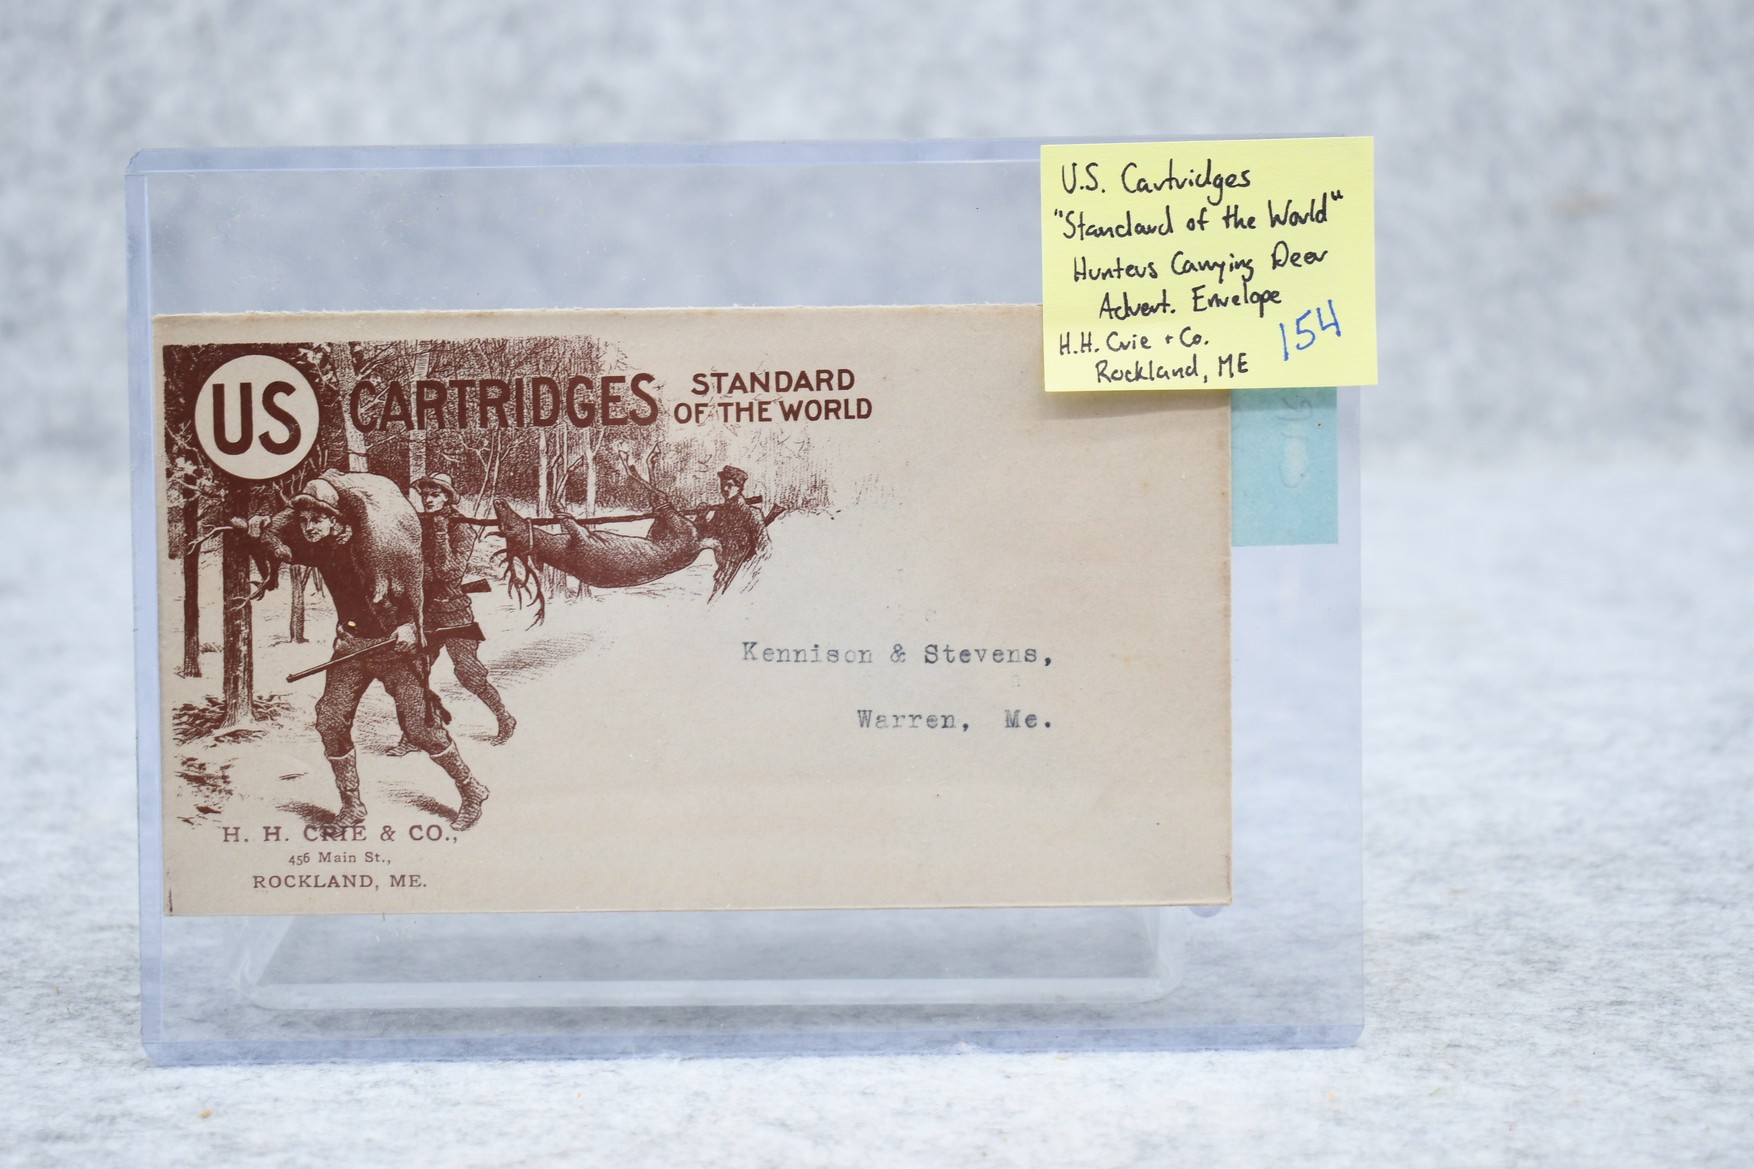 U.S. Cartridges
"Standard of the World"
Hunters Carrying Deer
Advert. Envelope
H.H. Crie + Co.
Rockland, ME
154
US CARTRIDGES STANDARD
OF THE WORLD
Kennison & Stevens,
Warren, Me.
H. H. CRIE & CO.,
456 Main St.,
ROCKLAND, ME.